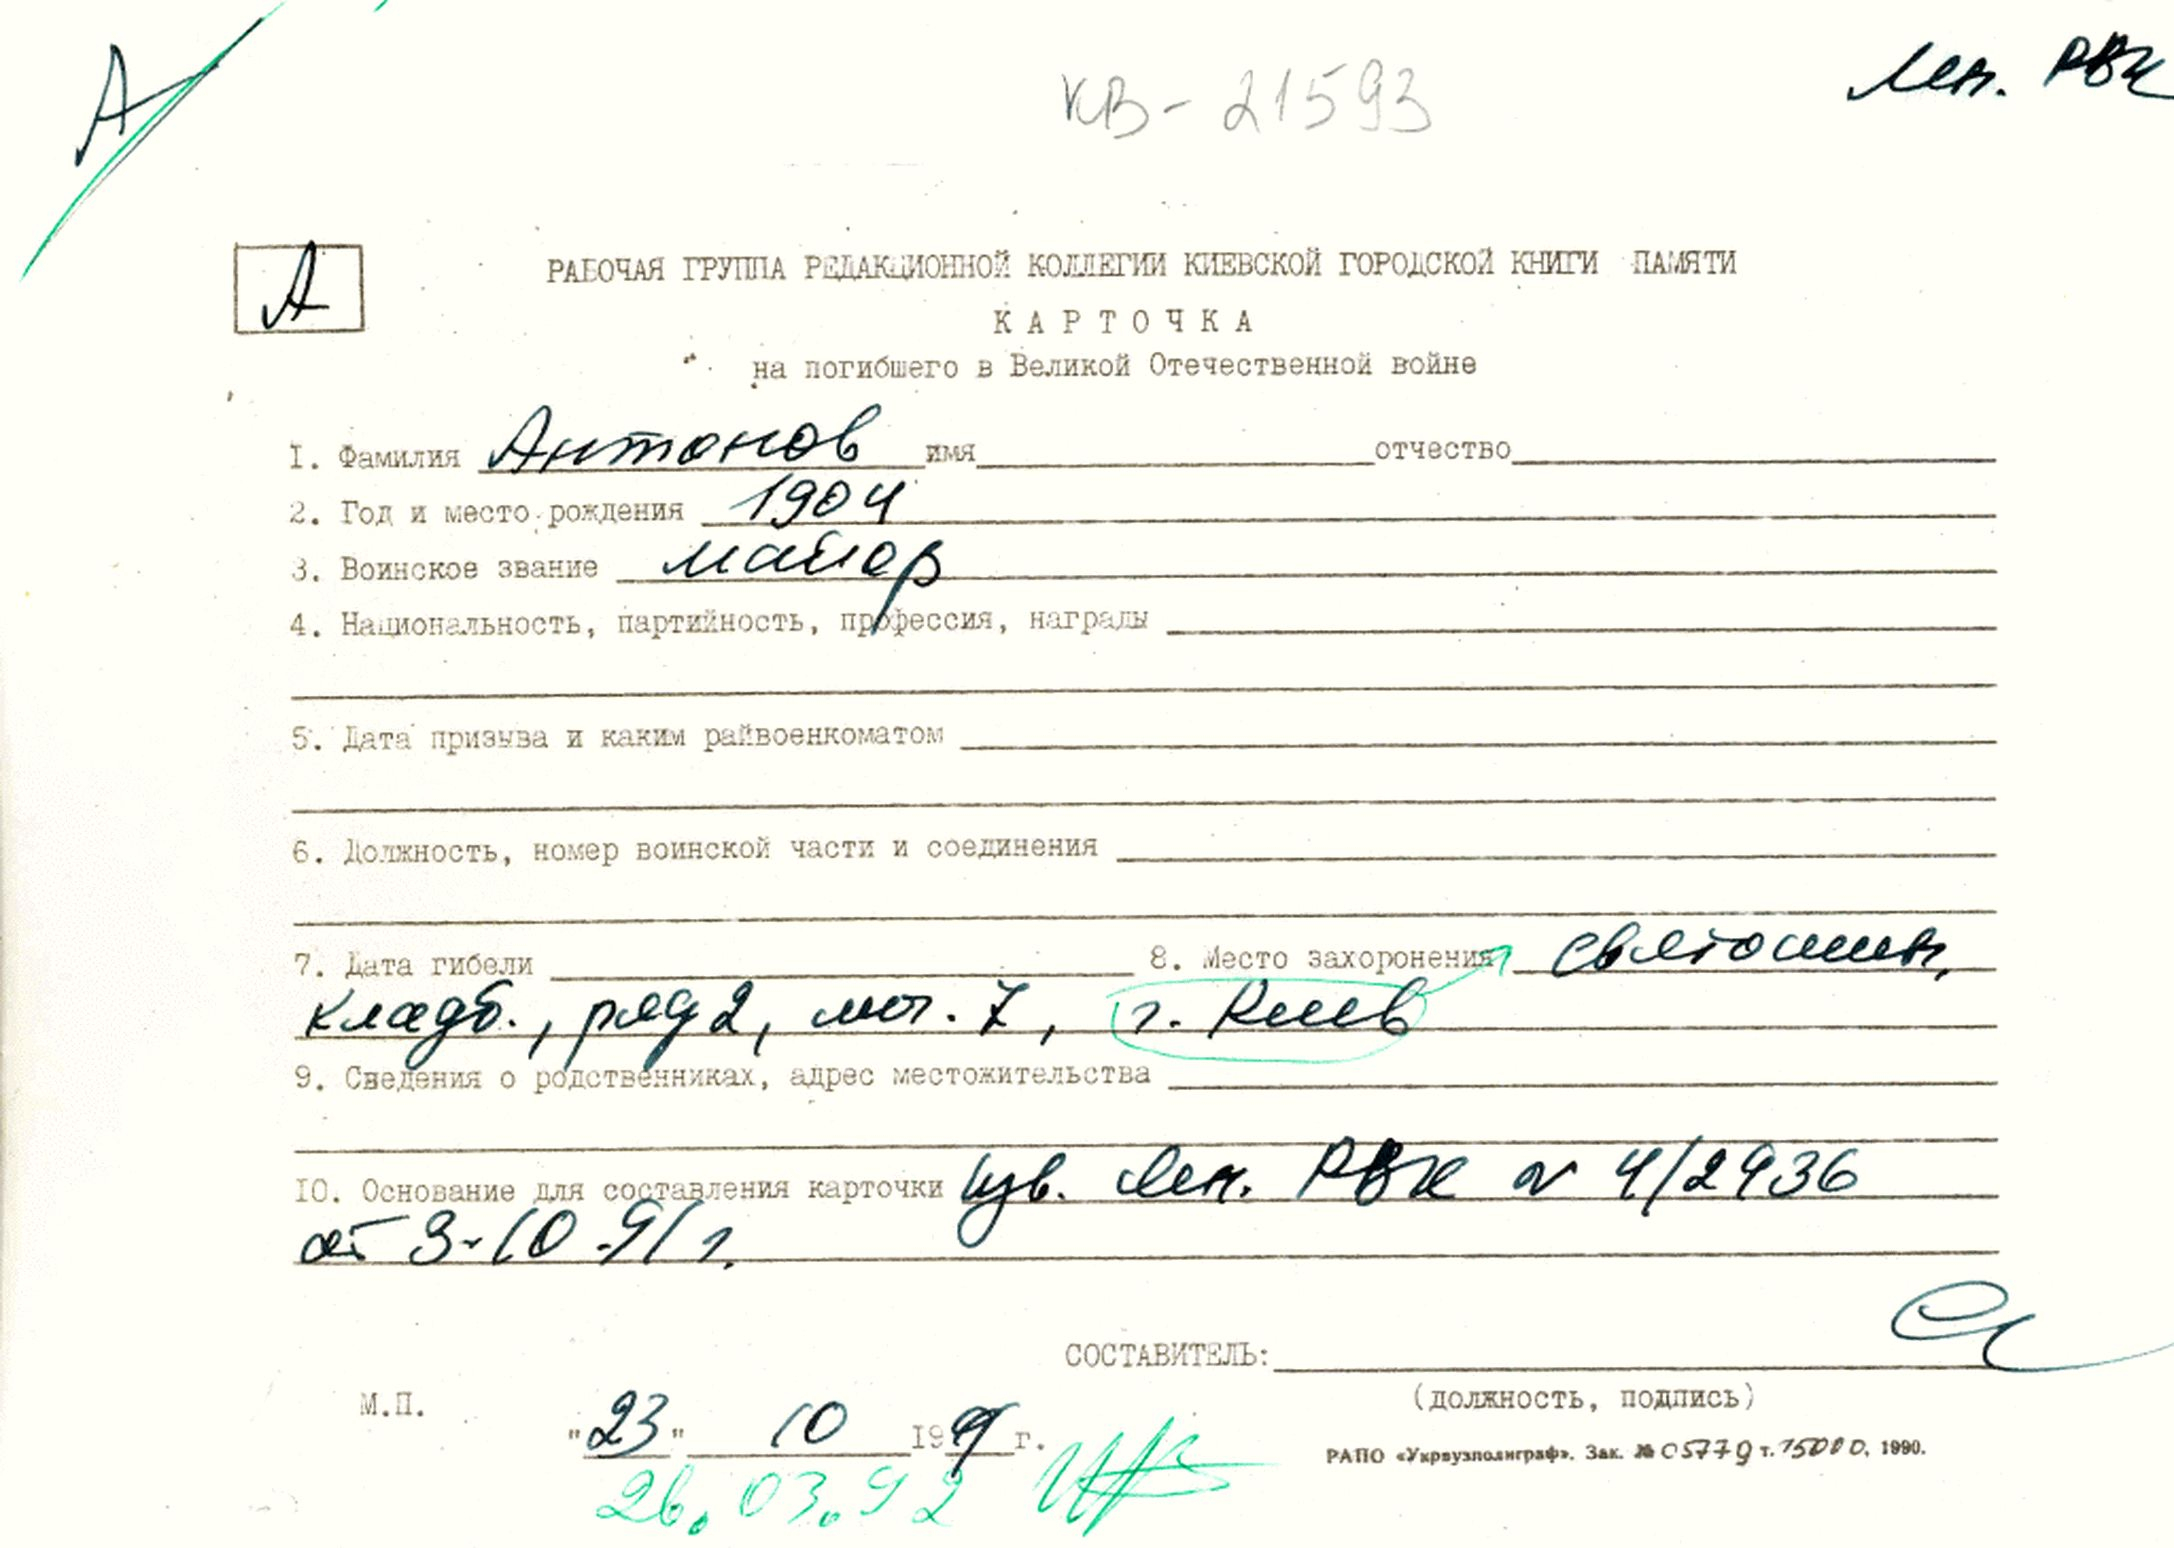 А
Лен. РВК
КВ-21593
А
РАБОЧАЯ ГРУППА РЕДАКЦИОННОЙ КОЛЛЕГИИ КИЕВСКОЙ ГОРОДСКОЙ КНИГИ ПАМЯТИ
КАРТОЧКА
на погибшего в Великой Отечественной войне
1. Фамилия Антонов имя отчество
2. Год и место рождения 1904
3. Воинское звание майор
4. Национальность, партийность, профессия, награды
5. Дата призыва и каким райвоенкоматом
6. Должность, номер воинской части и соединения
7. Дата гибели 8. Место захоронения Святошин.
кладб., ряд 2, мог. 7, г. Киев
9. Сведения о родственниках, адрес местожительства
10. Основание для составления карточки изв. Лен. РВК № 4/2936
от 3-10.91 г.
СОСТАВИТЕЛЬ:
(должность, подпись)
М.П.
"23" 10 1991 г.
РАПО «Укрвузполиграф». Зак. № 05779 т. 15000, 1990.
26.03.92